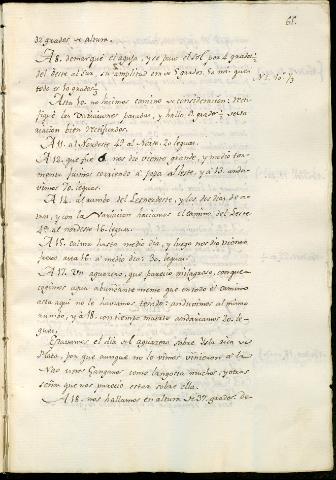 65.
32 grados de altura.
A 8. demarqué el aguja, y se puso el sol por 4 grados ½
del Oeste al Sur, su amplitud era de 5 grados. La
todo es 10 grados
N.E. 10º ½
Asta 10. no hacimos camino de consideracion;
qué las Variaciones pasadas, y hallo 8. grados ½ ser la
riacion bien rectificados.
A 11. al Nordeste 4ª al Norte. 20 leguas.
A 12. que fue nos dio viento grande, y medio tor-
menta fuimos corriendo á popa al este, y á 13. andu-
vimos 70. leguas.
A 14. al rumbo del Lesnordeste, y los dos dias de
y con la Variacion haciamos el camino del Leste
4ª al nordeste 16. leguas.
A 15. calma hasta medio dia, y luego nos dio viento
fresco asta 16. á medio dia: 30. leguas.
A 17. Un aguacero, que pareció milagroso, con que
cogimos agua abundantemente que en todo el camino
asta aquí no le haviamos tenido: anduvimos al mismo
rumbo, y á 18. con tiempo muerto andariamos 20. le-
guas.
Estavamos el dia del aguacero sobre Isla rica de
Plata, por que aunque no lo vimos vinieron á la
Nao unos Gangaos como langosta muchos, y otras
señas que nos pareció estar sobre ella.
A 18. nos hallamos en altura de 37. grados. de